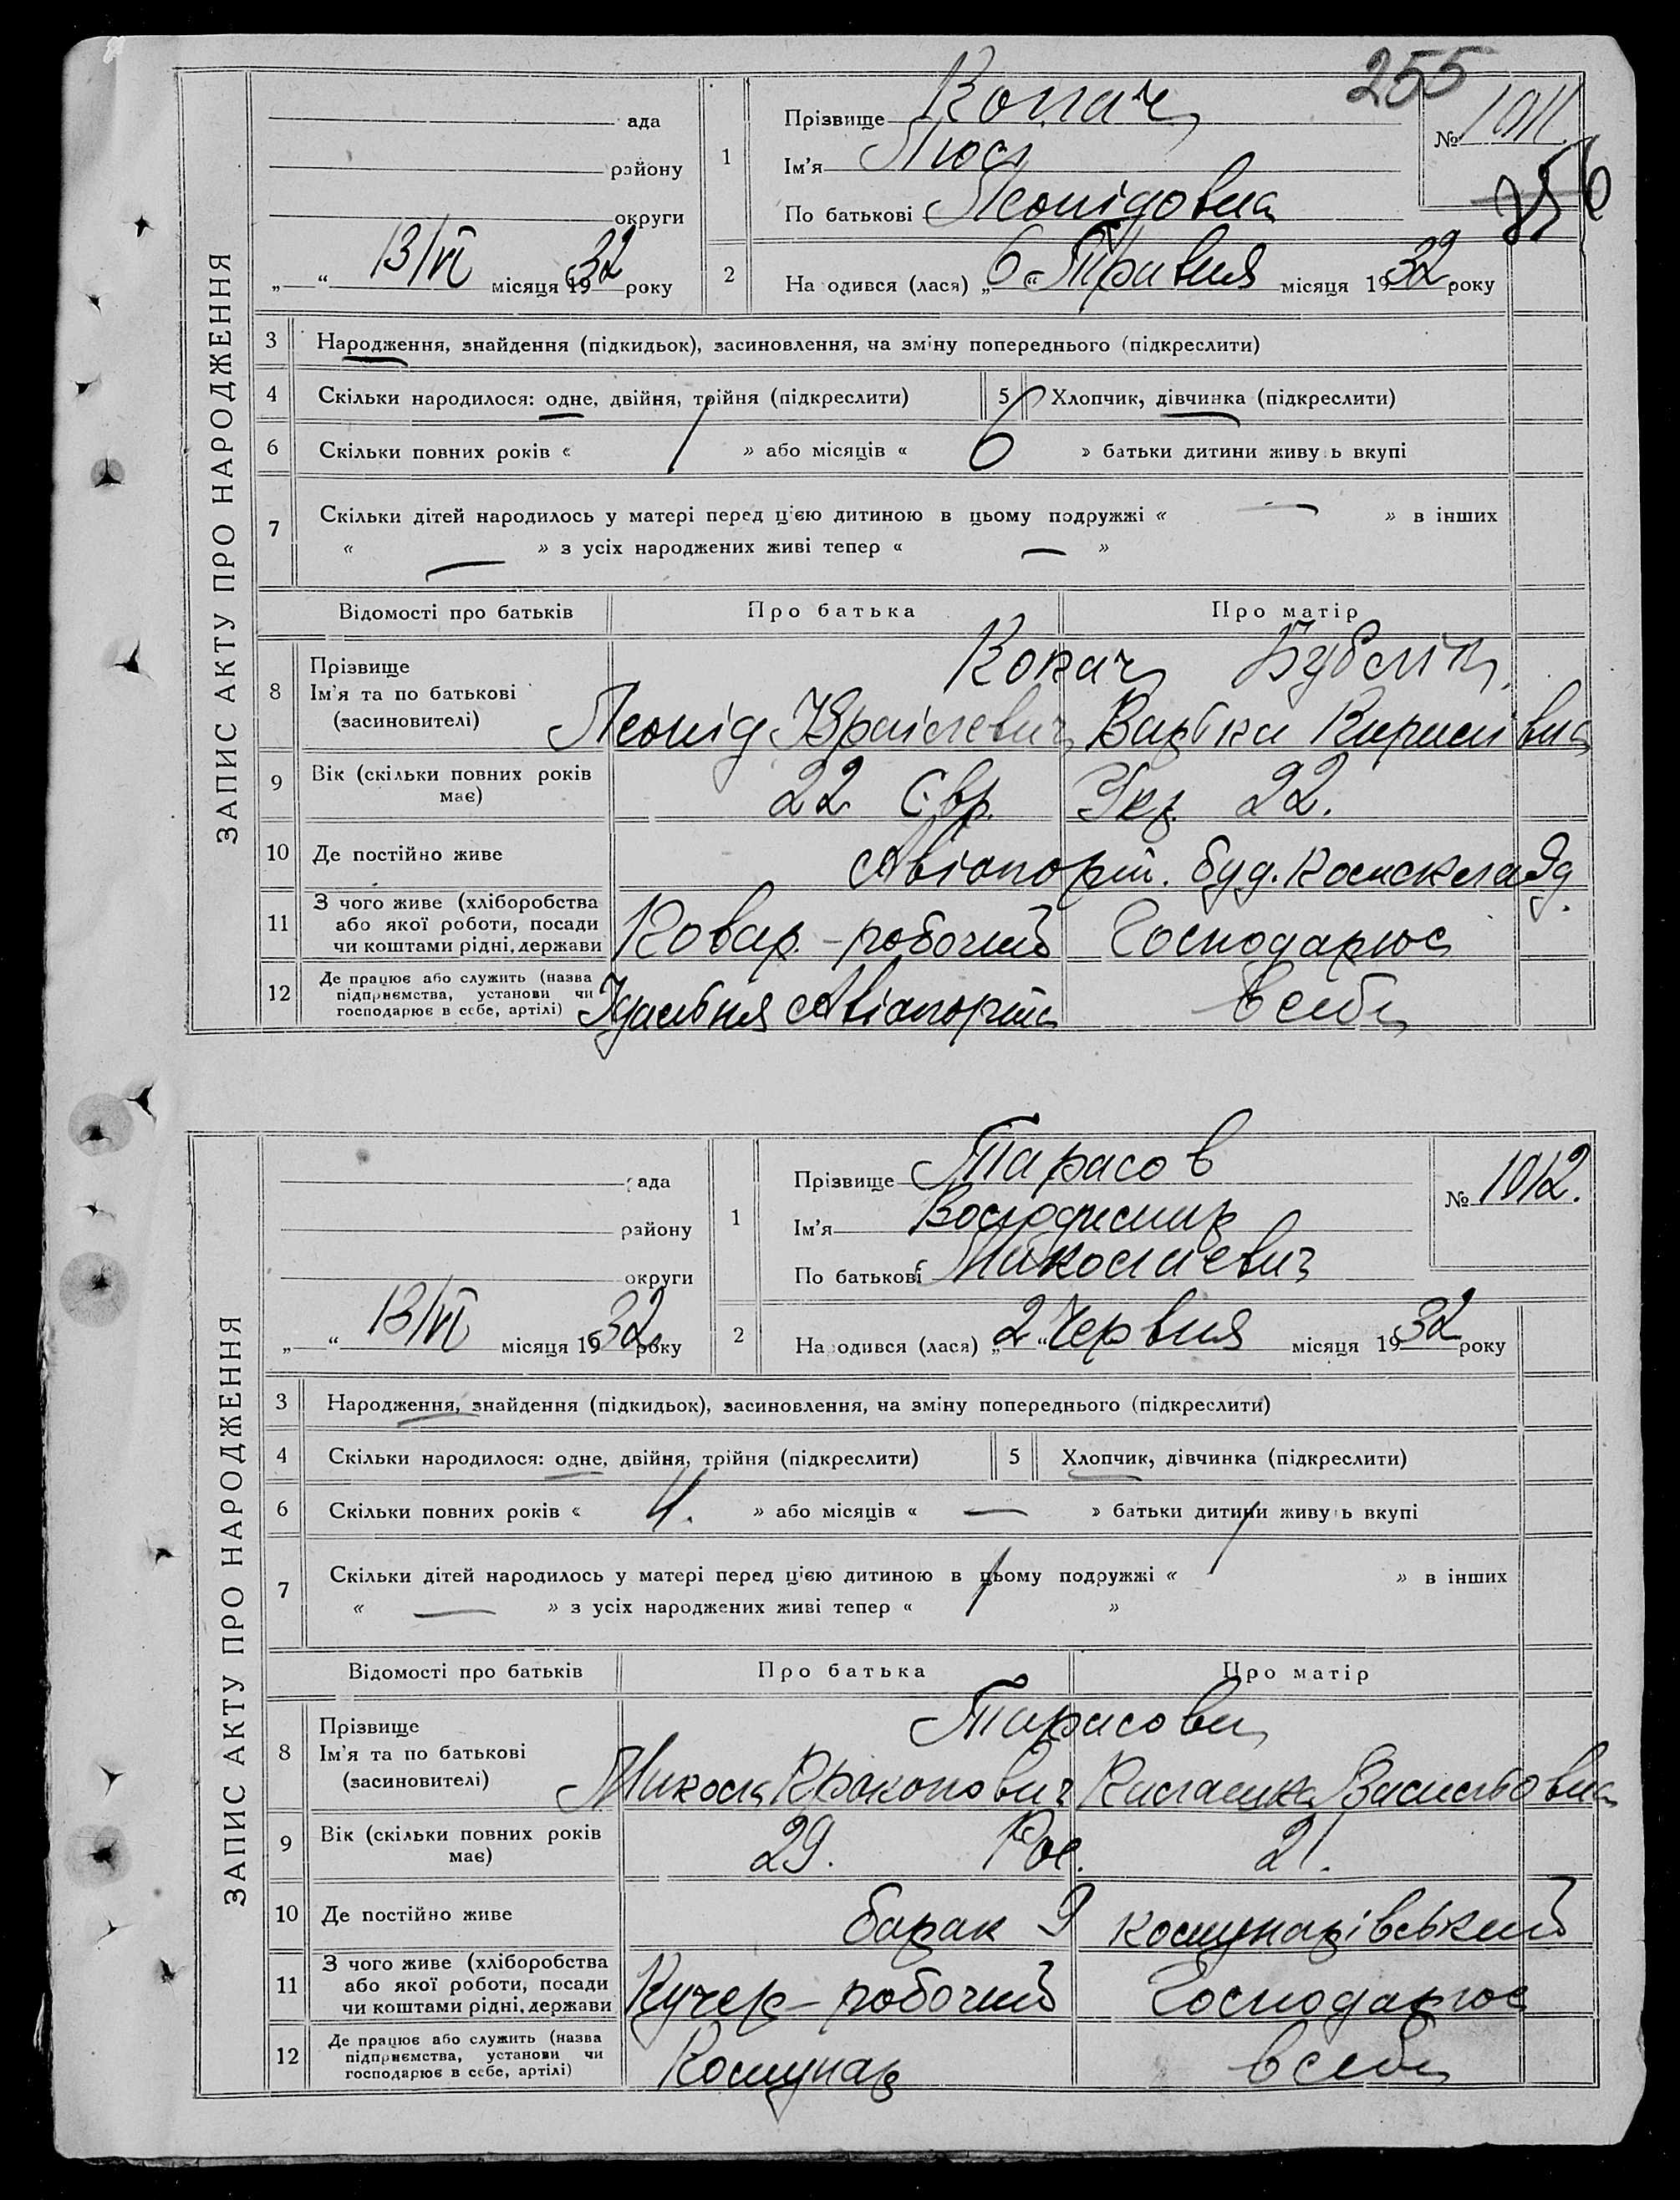 255
ЗАПИС АКТУ ПРО НАРОДЖЕННЯ
ада
району
округи
„ “ 13/VI місяця 1932 року
1
Прізвище Копач
Ім'я Люся
По батькові Леонідовна
№ 1011
256
2 На одився (лася) „6“ Травня місяця 1932 року
3 Народження, знайдення (підкидьок), засиновлення, на зміну попереднього (підкреслити)
4 Скільки народилося: одне, двійня, трійня (підкреслити) 5 Хлопчик, дівчинка (підкреслити)
6 Скільки повних років « 1 » або місяців « 6 » батьки дитини живу ь вкупі
7 Скільки дітей народилось у матері перед ц'єю дитиною в цьому подружжі « — » в інших
« — » з усіх народжених живі тепер « — »
Відомості про батьків Про батька Про матір
8 Прізвище
Ім'я та по батькові
(засиновителі)
Копач
Леонід
9 Вік (скільки повних років
має)
22 Євр. Укр. 22.
10 Де постійно живе Авіапорт. буд.
11 З чого живе (хліборобства
або якої роботи, посади
чи коштами рідні, держави
Ковар. – робочий Господарює
12 Де працює або служить (назва
підприємства, установи чи
господарює в себе, артілі)
Їдальня Авіапорта в себе
ЗАПИС АКТУ ПРО НАРОДЖЕННЯ
ада
району
округи
„ “ 13/VI місяця 1932 року
1
Прізвище Тарасов
Ім'я Володимир
По батькові Миколаевич
№ 1012.
2 На одився (лася) „2“ Червня місяця 1932 року
3 Народження, знайдення (підкидьок), засиновлення, на зміну попереднього (підкреслити)
4 Скільки народилося: одне, двійня, трійня (підкреслити) 5 Хлопчик, дівчинка (підкреслити)
6 Скільки повних років « 4. » або місяців « — » батьки дитини живу ь вкупі
7 Скільки дітей народилось у матері перед ц'єю дитиною в цьому подружжі « 1 » в інших
« — » з усіх народжених живі тепер « 1 »
Відомості про батьків Про батька Про матір
8 Прізвище
Ім'я та по батькові
(засиновителі)
Тарасови
Микола
9 Вік (скільки повних років
має)
29. Рос. 21.
10 Де постійно живе барак 9 комунарівський
11 З чого живе (хліборобства
або якої роботи, посади
чи коштами рідні, держави
Кучер – робочий Господарює
12 Де працює або служить (назва
підприємства, установи чи
господарює в себе, артілі)
Комунар в себе